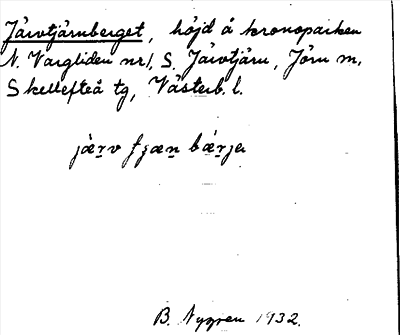 Järvtjärnberget, höjd å kronoparken
N. Vargliden nr 1, S. Järvtjärn, Jörn m.
Skellefteå tg, Västerb. l.
jærv ʃʒæn bærje
B. Nygren 1932.